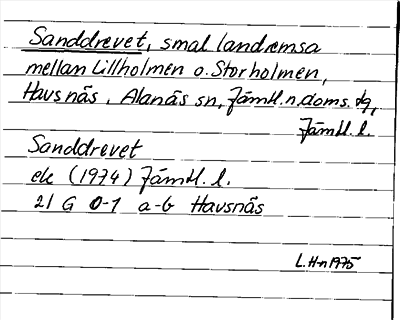 Sanddrevet, smal landremsa
mellan Lillholmen o. Storholmen,
Havsnäs, Alanäs sn, Jämtl. n. doms. dg,
Jämtl. l.
Sanddrevet
ek (1974) Jämtl. l.
21 G 0-1 a-b Havsnäs
L. H-n 1975